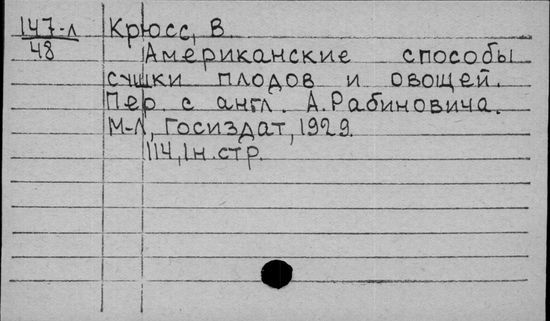 147-л Крюсс, В.
48
Американские способы
сушки плодов и овощей.
Пер. с англ. А. Рабиновича.
М-Л, Госиздат, 1929.
114, 1н. стр.